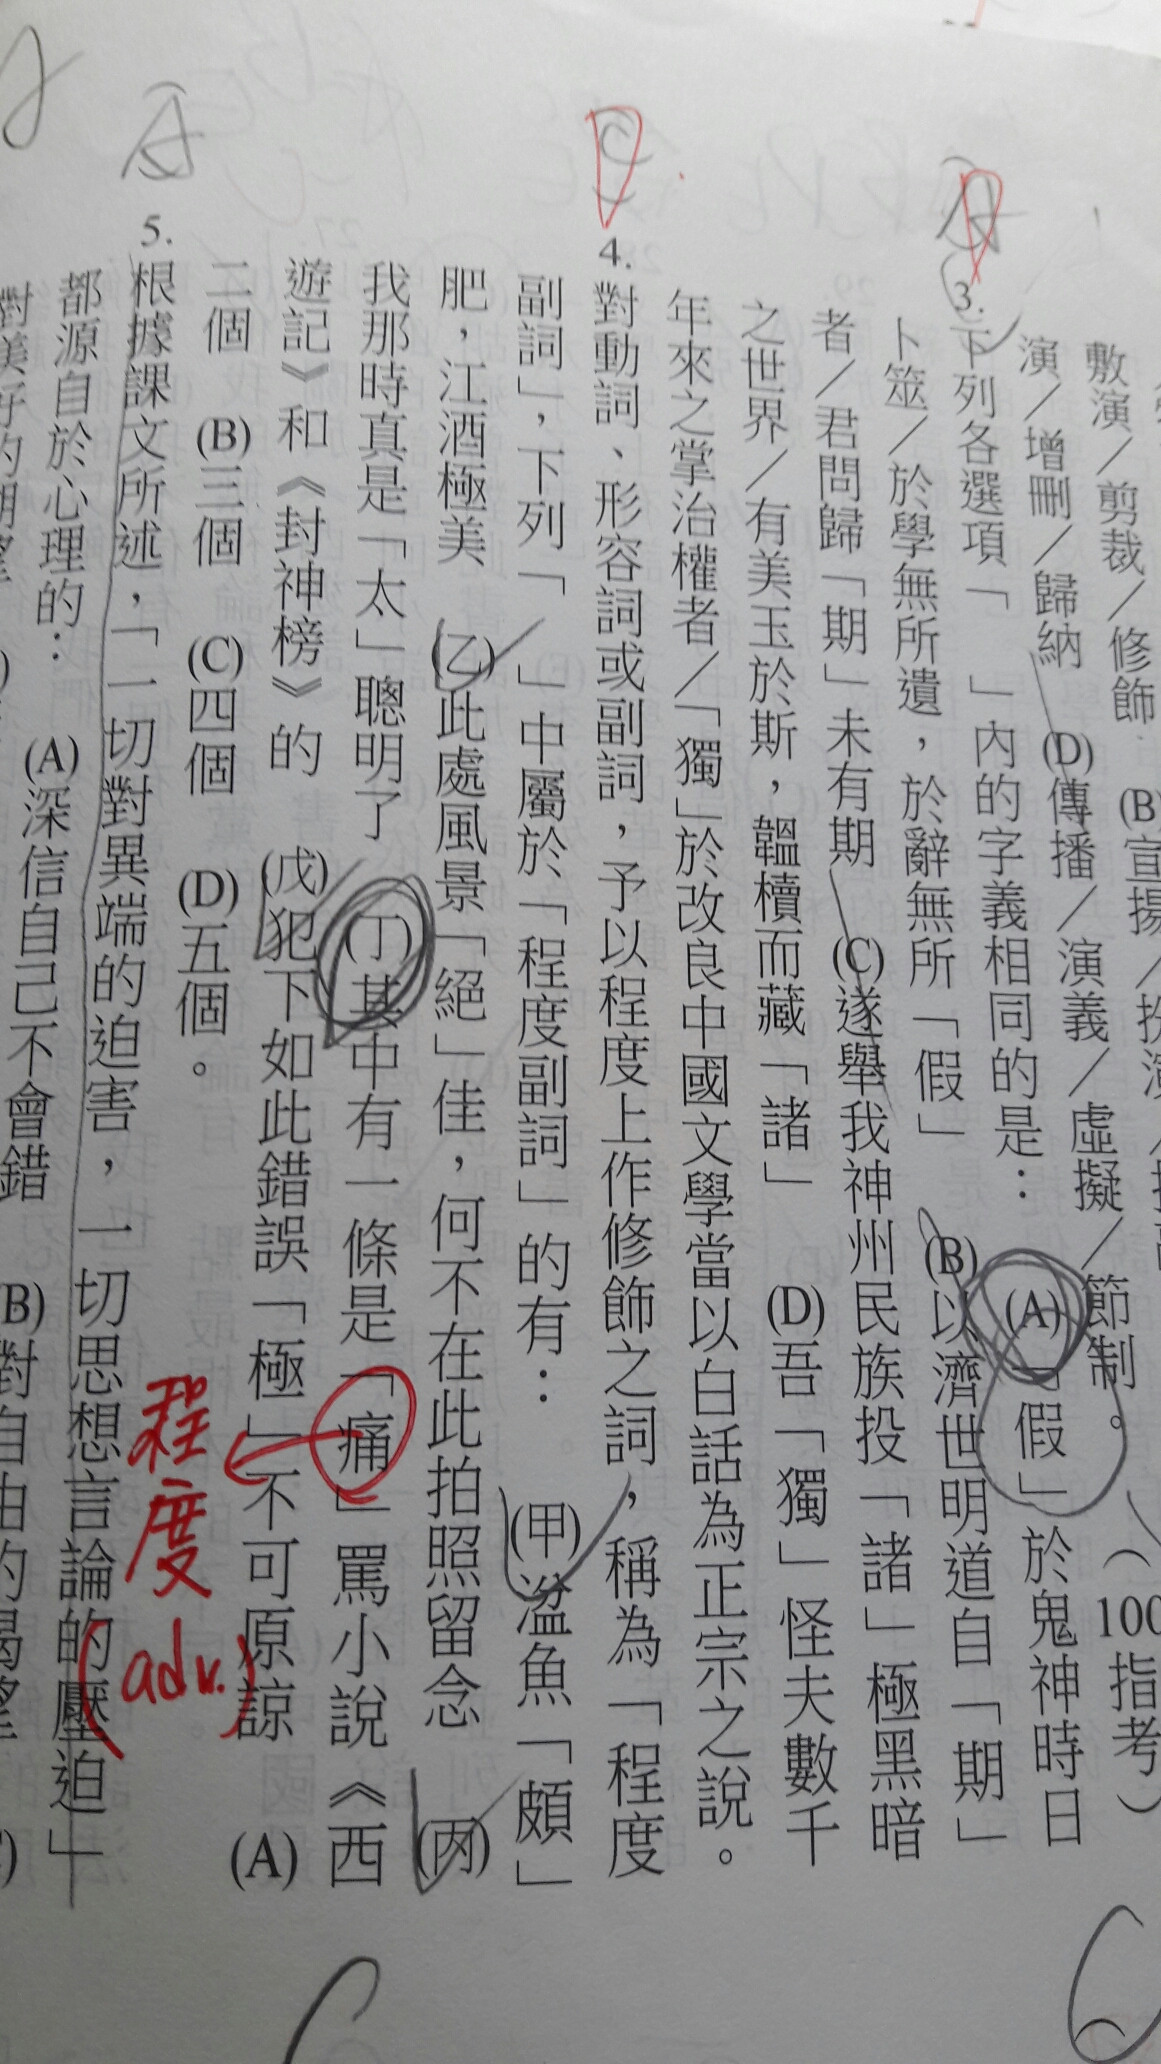 敷演／剪裁／修飾 (B)宣揚
演／增刪／歸納 (D)傳播／演義／虛擬／節制。（100指考）
A
3.下列各選項「 」內的字義相同的是： (A)「假」於鬼神時日
卜筮／於學無所遺，於辭無所「假」 (B)以濟世明道自「期」
者／君問歸「期」未有期 (C)遂舉我神州民族投「諸」極黑暗
之世界／有美玉於斯，韞櫝而藏「諸」 (D)吾「獨」怪夫數千
年來之掌治權者／「獨」於改良中國文學當以白話為正宗之說。
C
4.對動詞、形容詞或副詞，予以程度上作修飾之詞，稱為「程度
副詞」，下列「 」中屬於「程度副詞」的有： (甲)湓魚「頗」
肥，江酒極美 (乙)此處風景「絕」佳，何不在此拍照留念 (丙)
我那時真是「太」聰明了 (丁)其中有一條是「痛」罵小說《西
遊記》和《封神榜》的 (戊)犯下如此錯誤「極」不可原諒 (A)
二個 (B)三個 (C)四個 (D)五個。
程度
(adv.)
A
5.根據課文所述，「一切對異端的迫害，一切思想言論的壓迫」
都源自於心理的： (A)深信自己不會錯 (B)對自由的渴望